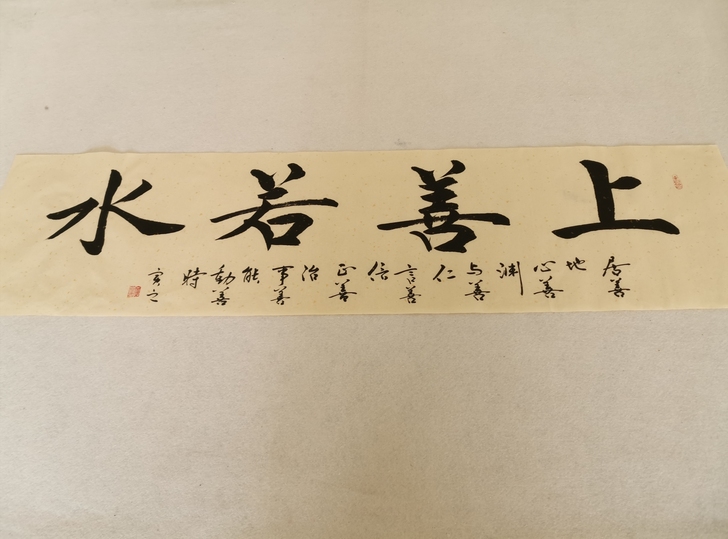 上善若水
居善
地
心善
渊
与善
仁
言善
信
正善
治
事善
能
動善
時